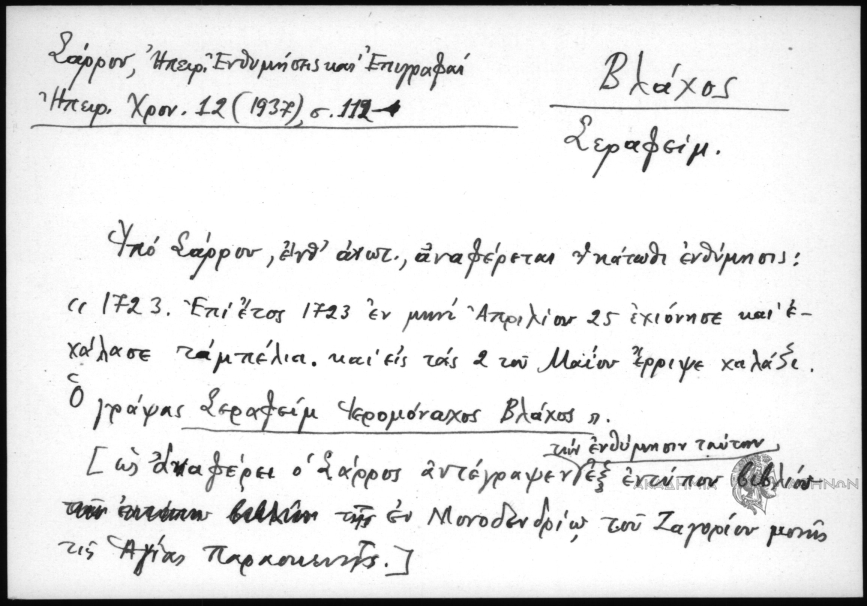 Σάρρου, Ἠπειρ. Ἐνθυμήσεις καὶ Ἐπιγραφαί
Ἠπειρ. Χρον. 12 (1937), σ. 112
Βλάχος
Σεραφείμ.
Ὑπό Σάρρου, ἔνθ' ἀνωτ., ἀναφέρεται ἡ κάτωθι ἐνθύμησις:
" 1723. Ἐπί ἔτος 1723 ἐν μηνί Ἀπριλίου 25 ἐχιόνησε καὶ ἐ-
χάλασε τἀμπέλια. καὶ εἰς τάς 2 τοῦ Μαΐου ἔρριψε χαλάζι.
Ὁ γράψας Σεραφείμ Ἱερομόναχος Βλάχος ".
τήν ἐνθύμησιν ταύτην
[ὡς ἀναφέρει ὁ Σάρρος ἀντέγραψεν ἐξ ἐντύπου βιβλίου
τῆς ἐν Μονοδενδρίῳ τοῦ Ζαγορίου μονῆς
τῆς Ἁγίας Παρασκευῆς.]
ΑΚΑΔΗΜΙΑ ΑΘΗΝΩΝ